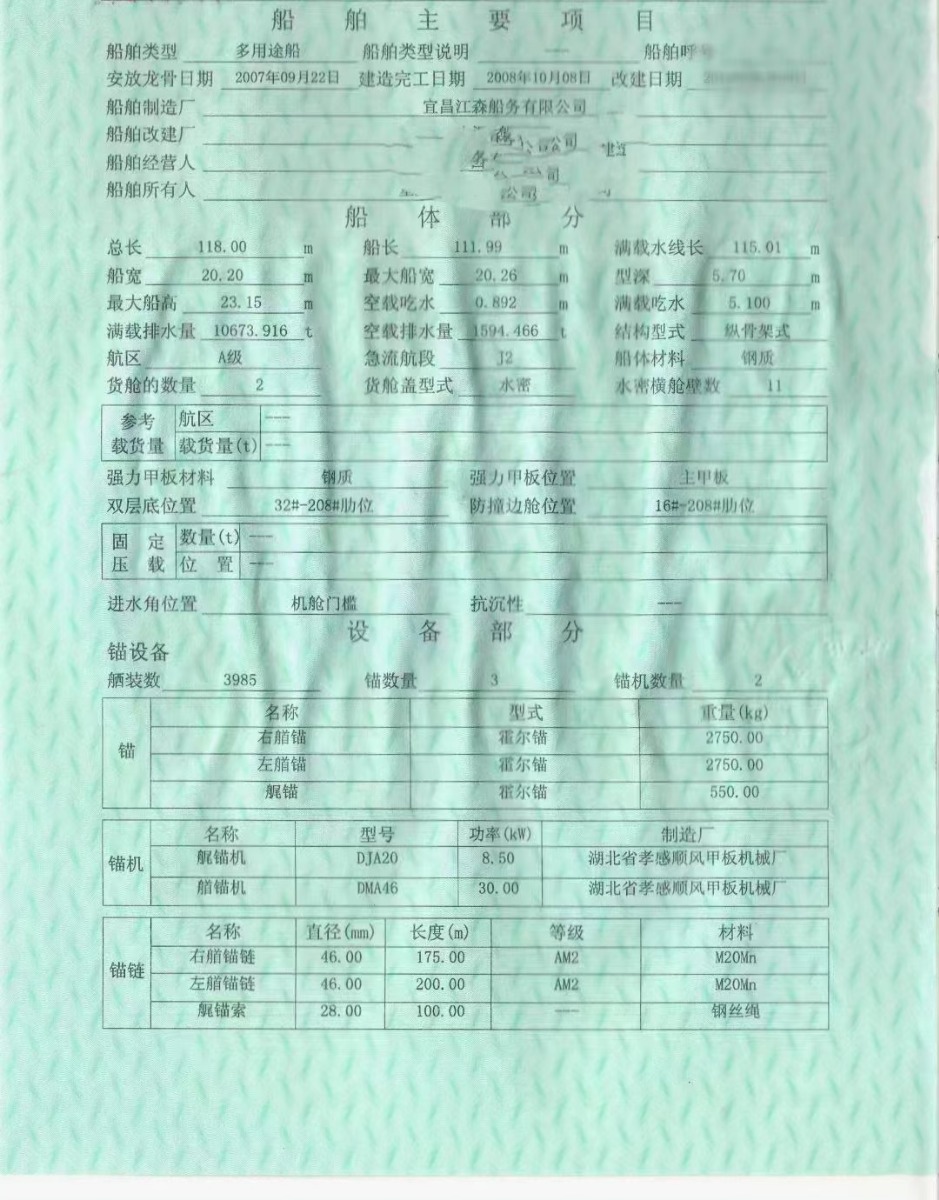 船舶主要项目
船舶类型 多用途船 船舶类型说明 --- 船舶呼
安放龙骨日期 2007年09月22日 建造完工日期 2008年10月08日 改建日期
船舶制造厂 宜昌江森船务有限公司
船舶改建厂
船舶经营人
船舶所有人 公司
船体部分
总长 118.00 m 船长 111.99 m 满载水线长 115.01 m
船宽 20.20 m 最大船宽 20.26 m 型深 5.70 m
最大船高 23.15 m 空载吃水 0.892 m 满载吃水 5.100 m
满载排水量 10673.916 t 空载排水量 1594.466 t 结构型式 纵骨架式
航区 A级 急流航段 J2 船体材料 钢质
货舱的数量 2 货舱盖型式 水密 水密横舱壁数 11
参考 航区 ---
载货量 载货量(t) ---
强力甲板材料 钢质 强力甲板位置 主甲板
双层底位置 32#-208#肋位 防撞边舱位置 16#-208#肋位
固定 数量(t) ---
压载 位置 ---
进水角位置 机舱门槛 抗沉性 ---
设备部分
锚设备
舾装数 3985 锚数量 3 锚机数量 2
名称 型式 重量(kg)
右艏锚 霍尔锚 2750.00
锚 左艏锚 霍尔锚 2750.00
艉锚 霍尔锚 550.00
名称 型号 功率(kW) 制造厂
锚机 艉锚机 DJA20 8.50 湖北省孝感顺风甲板机械厂
艏锚机 DMA46 30.00 湖北省孝感顺风甲板机械厂
名称 直径(mm) 长度(m) 等级 材料
右艏锚链 46.00 175.00 AM2 M20Mn
锚链 左艏锚链 46.00 200.00 AM2 M20Mn
艉锚索 28.00 100.00 --- 钢丝绳